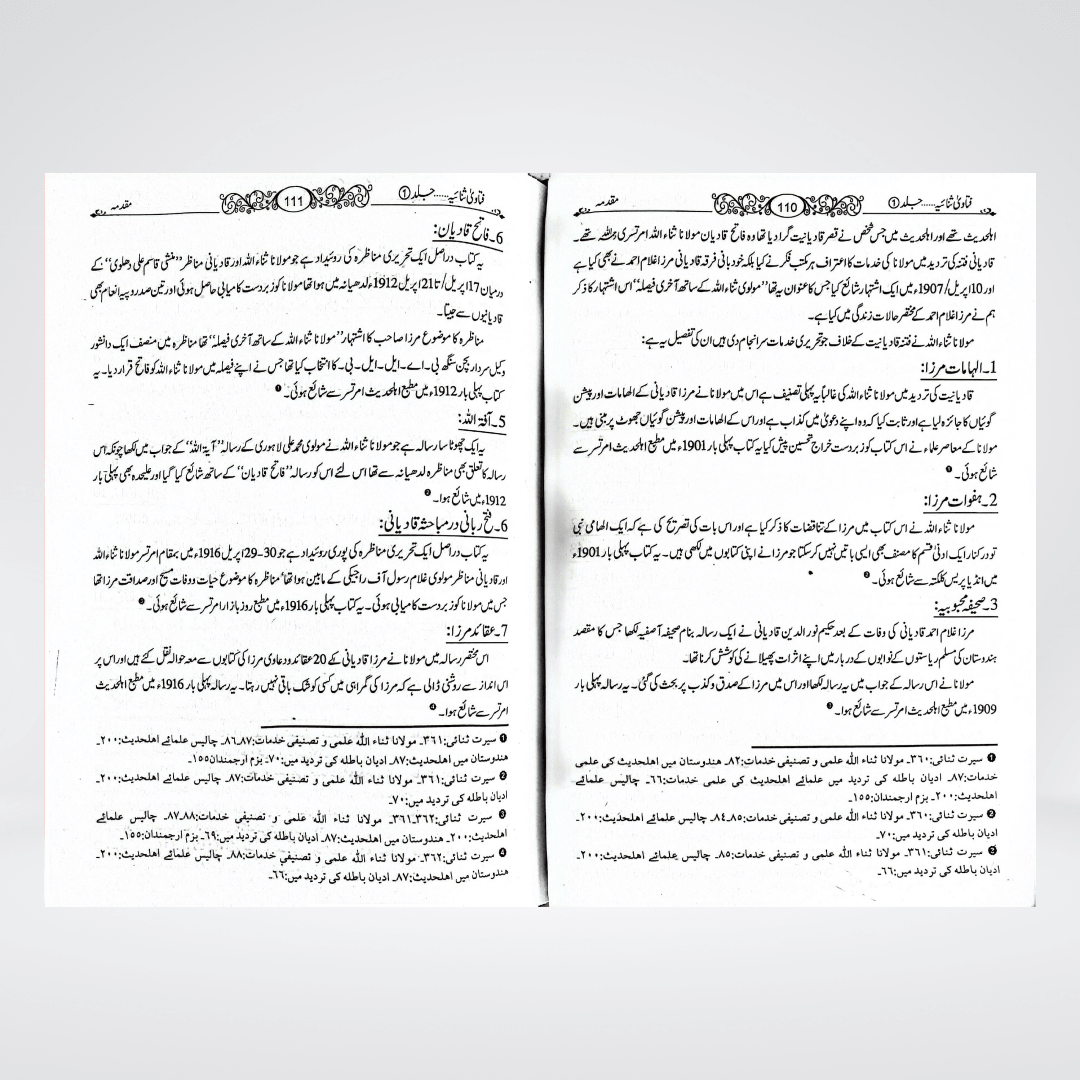 فتاویٰ ثنائیہ......جلد ①
110
مقدمہ
اہلحدیث تھے اور اہلحدیث میں جس شخص نے قصر قادیانیت گرا دیا تھا وہ فاتح قادیان مولانا ثناء اللہ امرتسری رحمہ اللہ تھے۔
قادیانی فتنہ کی تردید میں مولانا کی خدمات کا اعتراف ہر مکتب فکر نے کیا بلکہ خود بانی فرقہ قادیانی مرزا غلام احمد نے بھی کیا ہے
اور 10 اپریل/1907ء میں ایک اشتہار شائع کیا جس کا عنوان یہ تھا ’’مولوی ثناء اللہ کے ساتھ آخری فیصلہ‘‘ اس اشتہار کا ذکر
ہم نے مرزا غلام احمد کے مختصر حالات زندگی میں کیا ہے۔
مولانا ثناء اللہ نے فتنہ قادیانیت کے خلاف جو تحریری خدمات سرانجام دی ہیں ان کی تفصیل یہ ہے:
1۔ الہامات مرزا:
قادیانیت کی تردید میں مولانا ثناء اللہ کی غالباً یہ پہلی تصنیف ہے اس میں مولانا نے مرزا قادیانی کے الھامات اور پیشن
گوئیاں کا جائزہ لیا ہے اور ثابت کیا کہ وہ اپنے دعویٰ میں کذاب ہے اور اس کے الھامات اور پیشن گوئیاں جھوٹ پر مبنی ہیں۔
مولانا کے معاصر علماء نے اس کتاب کو زبردست خراج تحسین پیش کیا یہ کتاب پہلی بار 1901ء میں مطبع اہلحدیث امرتسر سے
شائع ہوئی۔ ❶
2۔ ہفوات مرزا:
مولانا ثناء اللہ نے اس کتاب میں مرزا کے تناقضات کا ذکر کیا ہے اور اس بات کی تصریح کی ہے کہ ایک الھامی نبی
تو درکنار ایک ادنیٰ قسم کا مصنف بھی ایسی باتیں نہیں کر سکتا جو مرزا نے اپنی کتابوں میں لکھی ہیں۔ یہ کتاب پہلی بار 1901ء
میں انڈیا پریس کلکتہ سے شائع ہوئی۔ ❷
3۔ صحیفہ محبوبیہ:
مرزا غلام احمد قادیانی کی وفات کے بعد حکیم نور الدین قادیانی نے ایک رسالہ بنام صحیفہ آصفیہ لکھا جس کا مقصد
ہندوستان کی مسلم ریاستوں کے نوابوں کے دربار میں اپنے اثرات پھیلانے کی کوشش کرنا تھا۔
مولانا نے اس رسالہ کے جواب میں یہ رسالہ لکھا اور اس میں مرزا کے صدق و کذب پر بحث کی گئی۔ یہ رسالہ پہلی بار
1909ء میں مطبع اہلحدیث امرتسر سے شائع ہوا۔ ❸
❶ سیرت ثنائی:۳۶۰۔ مولانا ثناء اللہ علمی و تصنیفی خدمات:۸۲۔ ھندوستان میں اھلحدیث کی علمی
خدمات:۸۷۔ ادیان باطلہ کی تردید میں علمائے اھلحدیث کی علمی خدمات:۶۶۔ چالیس علمائے
اھلحدیث:۲۰۰۔ بزم ارجمندان:۱۵۵۔
❷ سیرت ثنائی:۳۶۰۔ مولانا ثناء اللہ علمی و تصنیفی خدمات:۸۵،۸۴۔ چالیس علمائے اھلحدیث:۲۰۰۔
ادیان باطلہ کی تردید میں:۷۰۔
❸ سیرت ثنائی:۳۶۱۔ مولانا ثناء اللہ علمی و تصنیفی خدمات:۸۵۔ چالیس علمائے اھلحدیث:۲۰۰۔
ادیان باطلہ کی تردید میں:۶۶۔
فتاویٰ ثنائیہ......جلد ①
111
مقدمہ
6۔ فاتح قادیان:
یہ کتاب دراصل ایک تحریری مناظرہ کی روئیداد ہے جو مولانا ثناء اللہ اور قادیانی مناظر ’’منشی قاسم علی دھلوی‘‘ کے
درمیان 17 اپریل/تا 21 اپریل 1912ء لدھیانہ میں ہوا تھا مولانا کو زبردست کامیابی حاصل ہوئی اور تین صد روپیہ انعام بھی
قادیانیوں سے جیتا۔
مناظرہ کا موضوع مرزا صاحب کا اشتہار ’’مولانا ثناء اللہ کے ساتھ آخری فیصلہ‘‘ تھا مناظرہ میں منصف ایک دانشور
وکیل سردار بچن سنگھ بی۔اے۔ایل۔ایل۔بی۔ کا انتخاب کیا تھا جس نے اپنے فیصلہ میں مولانا ثناء اللہ کو فاتح قرار دیا۔ یہ
کتاب پہلی بار 1912ء میں مطبع اہلحدیث امرتسر سے شائع ہوئی۔ ❶
5۔ آفۃ اللہ:
یہ ایک چھوٹا سا رسالہ ہے جو مولانا ثناء اللہ نے مولوی محمد علی لاہوری کے رسالہ ’’آیۃ اللہ‘‘ کے جواب میں لکھا چونکہ اس
رسالہ کا تعلق بھی مناظرہ لدھیانہ سے تھا اس لئے اس کو رسالہ ’’فاتح قادیان‘‘ کے ساتھ شائع کیا گیا اور علیحدہ بھی پہلی بار
1912ء میں شائع ہوا۔ ❷
6۔ فتح ربانی در مباحثہ قادیانی:
یہ کتاب دراصل ایک تحریری مناظرہ کی پوری روئیداد ہے جو 30-29 اپریل 1916ء میں بمقام امرتسر مولانا ثناء اللہ
اور قادیانی مناظر مولوی غلام رسول آف راجیکی کے مابین ہوا تھا مناظرہ کا موضوع حیات و وفات مسیح اور صداقت مرزا تھا
جس میں مولانا کو زبردست کامیابی ہوئی۔ یہ کتاب پہلی بار 1916ء میں مطبع روز بازار امرتسر سے شائع ہوئی۔ ❸
7۔ عقائد مرزا:
اس مختصر رسالہ میں مولانا نے مرزا قادیانی کے 20 عقائد و دعاوی مرزا کی کتابوں سے معہ حوالہ نقل کئے ہیں اور اس پر
اس انداز سے روشنی ڈالی ہے کہ مرزا کی گمراہی میں کسی کو شک باقی نہیں رہتا۔ یہ رسالہ پہلی بار 1916ء میں مطبع اہلحدیث
امرتسر سے شائع ہوا۔ ❹
❶ سیرت ثنائی:۳۶۱۔ مولانا ثناء اللہ علمی و تصنیفی خدمات:۸۶،۸۷۔ چالیس علمائے اھلحدیث:۲۰۰۔
ھندوستان میں اھلحدیث:۸۷۔ ادیان باطلہ کی تردید میں:۷۰۔ بزم ارجمندان۱۵۵۔
❷ سیرت ثنائی:۳۶۱۔ مولانا ثناء اللہ علمی و تصنیفی خدمات:۸۷۔ چالیس علمائے اھلحدیث:۲۰۰۔
ادیان باطلہ کی تردید میں:۷۰۔
❸ سیرت ثنائی:۳۶۱،۳۶۲۔ مولانا ثناء اللہ علمی و تصنیفی خدمات:۸۷،۸۸۔ چالیس علمائے
اھلحدیث:۲۰۰۔ ھندوستان میں اھلحدیث:۸۷۔ ادیان باطلہ کی تردید میں:۶۹۔ بزم ارجمندان:۱۵۵۔
❹ سیرت ثنائی:۳۶۲۔ مولانا ثناء اللہ علمی و تصنیفی خدمات:۸۸۔ چالیس علمائے اھلحدیث:۲۰۰۔
ھندوستان میں اھلحدیث:۸۷۔ ادیان باطلہ کی تردید میں:۶۶۔